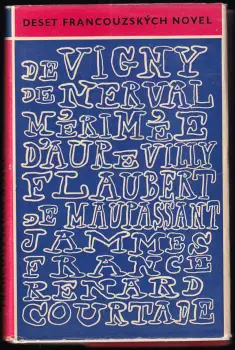 DESET FRANCOUZSKÝCH NOVEL
DE VIGNY
DE NERVAL
MÉRIMÉE
D'AUREVILLY
FLAUBERT
DE MAUPASSANT
JAMMES
FRANCE
RENARD
COURTADE